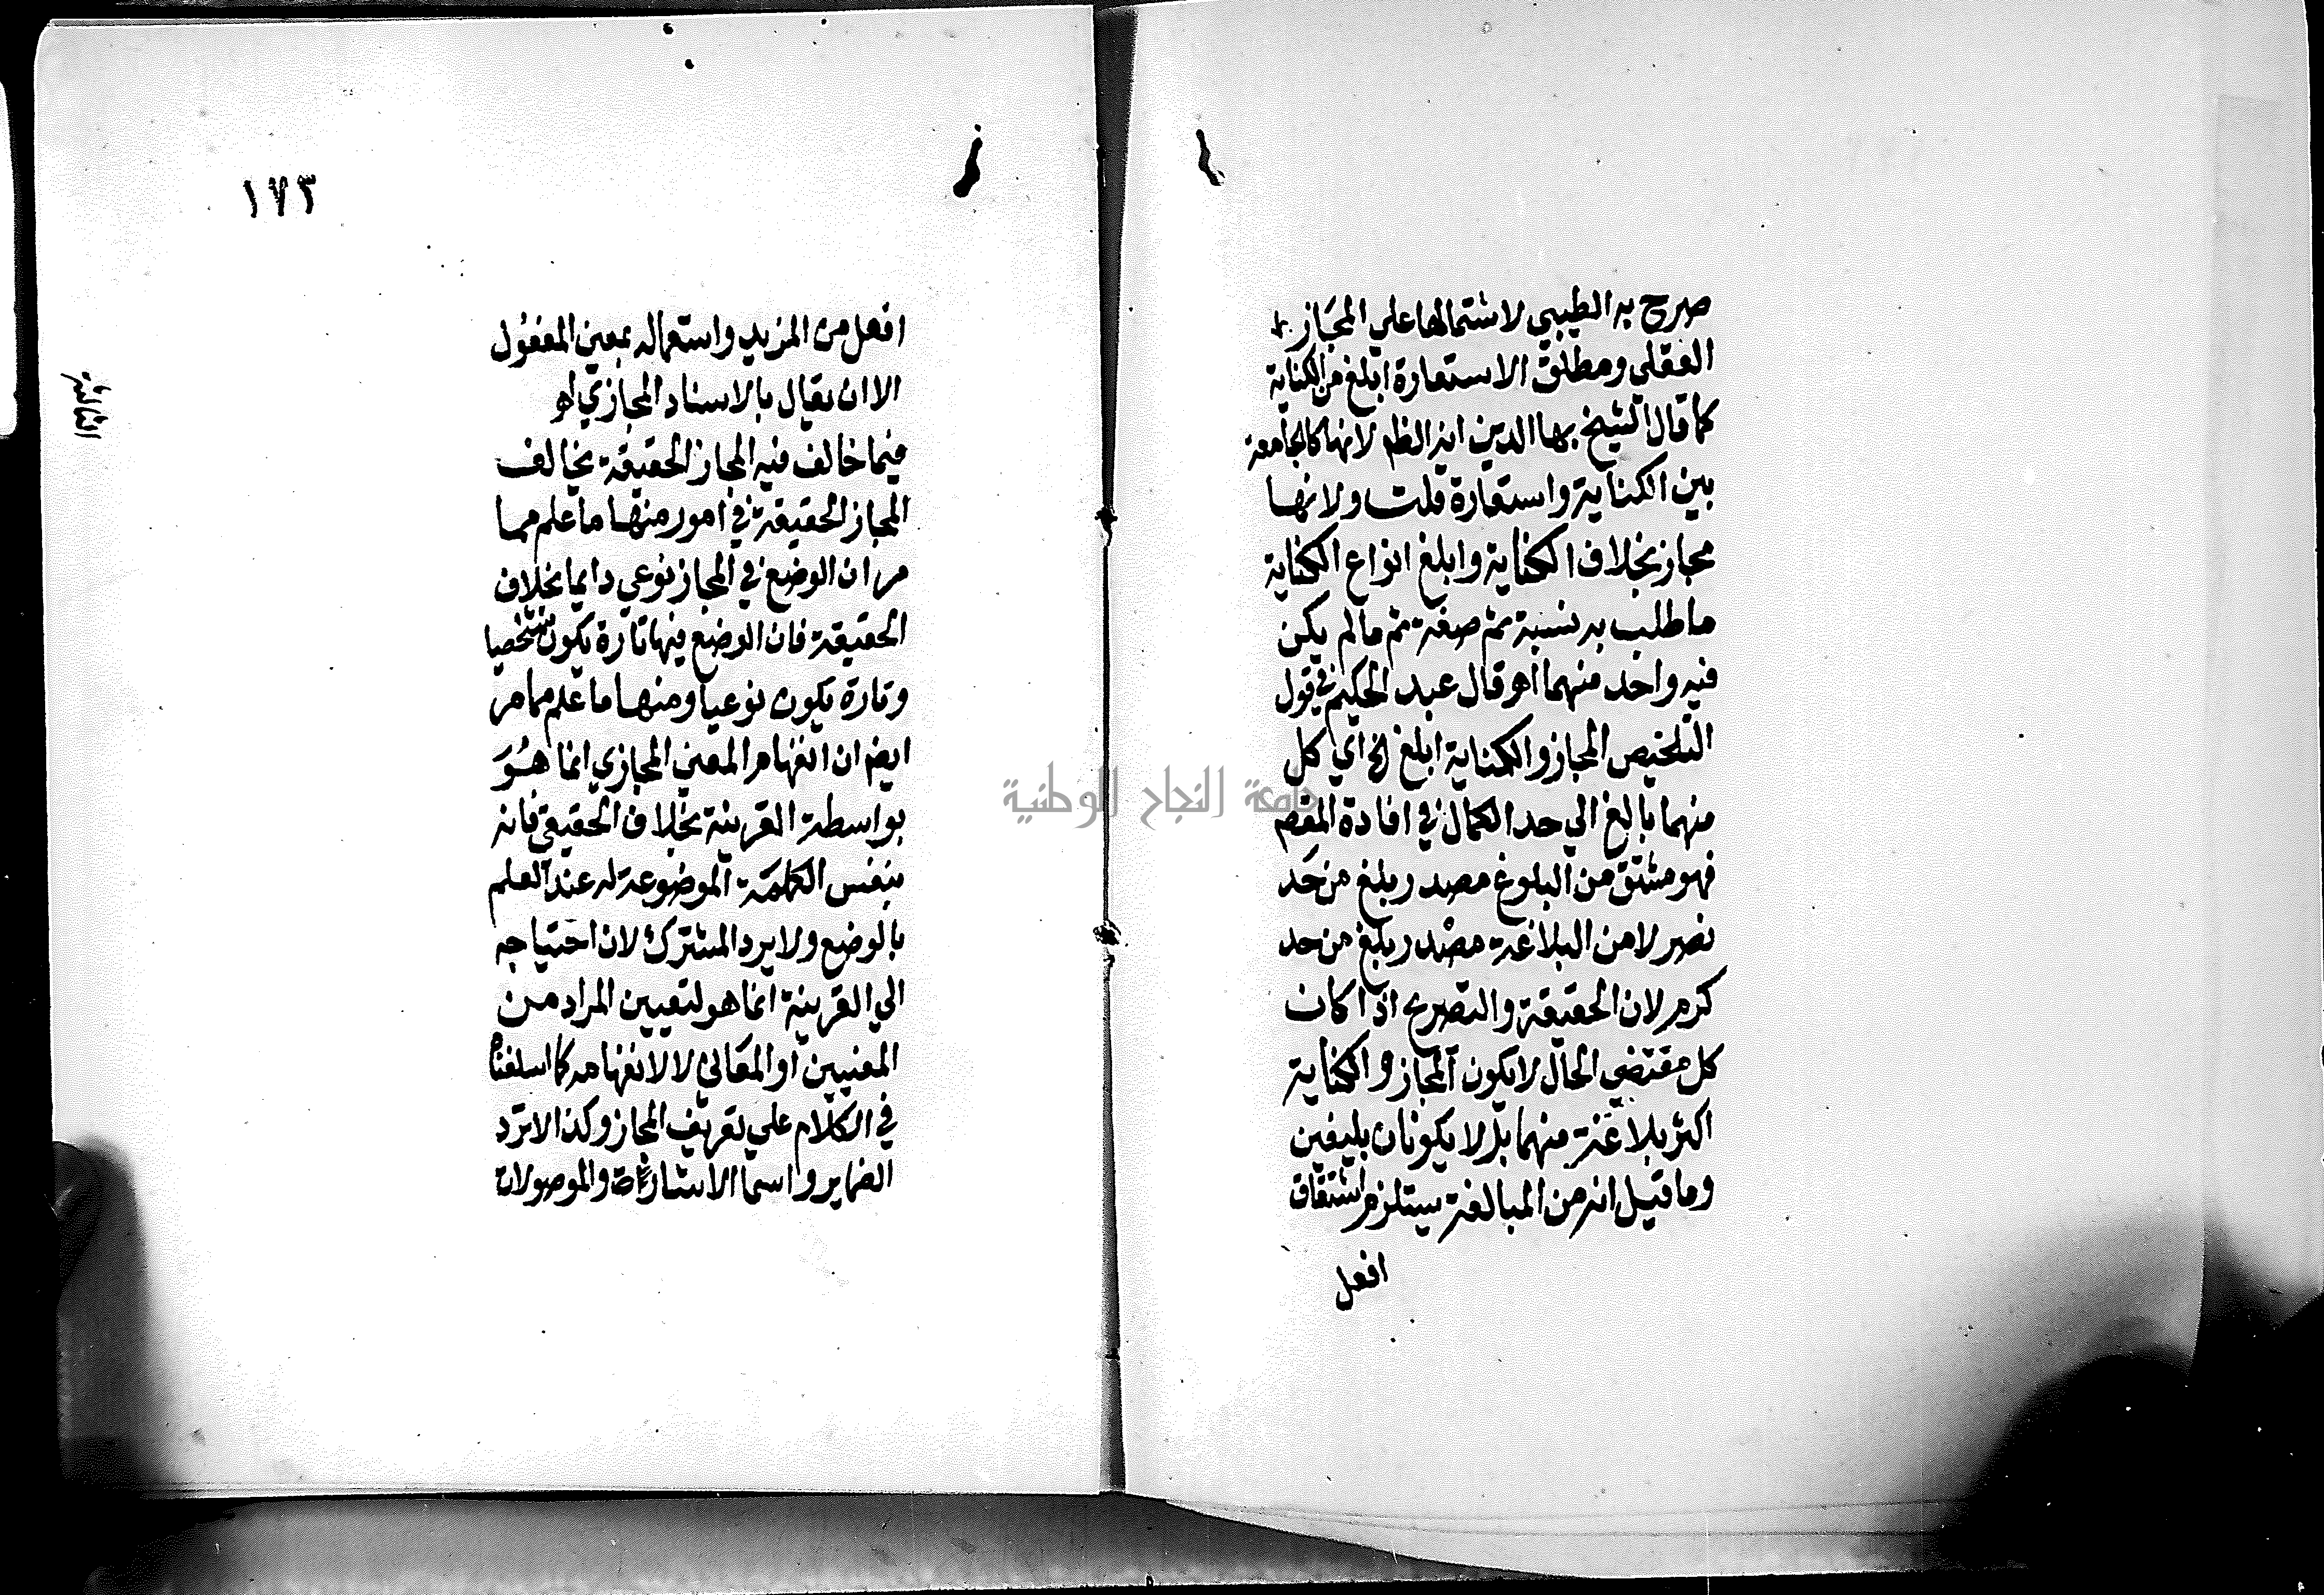 صرح به الطيبي لاشتمالها على المجاز
العقلي ومطلق الاستعارة ابلغ من الكناية
كما قال الشيخ بها الدين انه الظم لانها كالجامعة
بين الكناية واستعارة قلت ولانها
مجاز بخلاف الكناية وابلغ انواع الكناية
ما طلب به نسبة ثم صفة ثم ما لم يكن
فيه واحد منهما اهو قال عبد الحكيم في قول
التلخيص المجاز والكناية ابلغ الخ اي كل
منهما بالغ الي حد الكمال في افادة المقصم
فهو مشتق من البلوغ مصدر بلغ من حد
نصر لا من البلاغة مصدر بلغ من حد
كرم لان الحقيقة والتصريح اذا كان
كل مقتضي الحال لا يكون المجاز والكناية
اكثر بلاغة منهما بل لا يكونان بليغين
وما قيل انه من المبالغة يستلزم اشتقاق
افعل
١٧٣
افعل من المزيد واستعماله بمعني المفعول
الا ان يقال بالاسناد المجازي اهو
فيما خالف فيه المجاز الحقيقة يخالف
المجاز الحقيقة في امور منها ما علم مما
مر ان الوضع في المجاز نوعي دايما بخلاف
الحقيقة فان الوضع فيها تارة يكون شخصيا
وتارة يكون نوعيا ومنها ما علم مما مر
ايضم ان انفهام المعني المجازي انما هو
بواسطة القرينة بخلاف الحقيقي فانه
بنفس الكلمة الموضوعة له عند العلم
بالوضع ولا يرد المشترك لان احتياجه
الي القرينة انما هو لتعيين المراد من
المعنيين او المعاني لا لانفهامه كما اسلفناه
في الكلام علي تعريف المجاز وكذا لا ترد
الضماير واسما الاشارات والموصولات
جامعة النجاح الوطنية